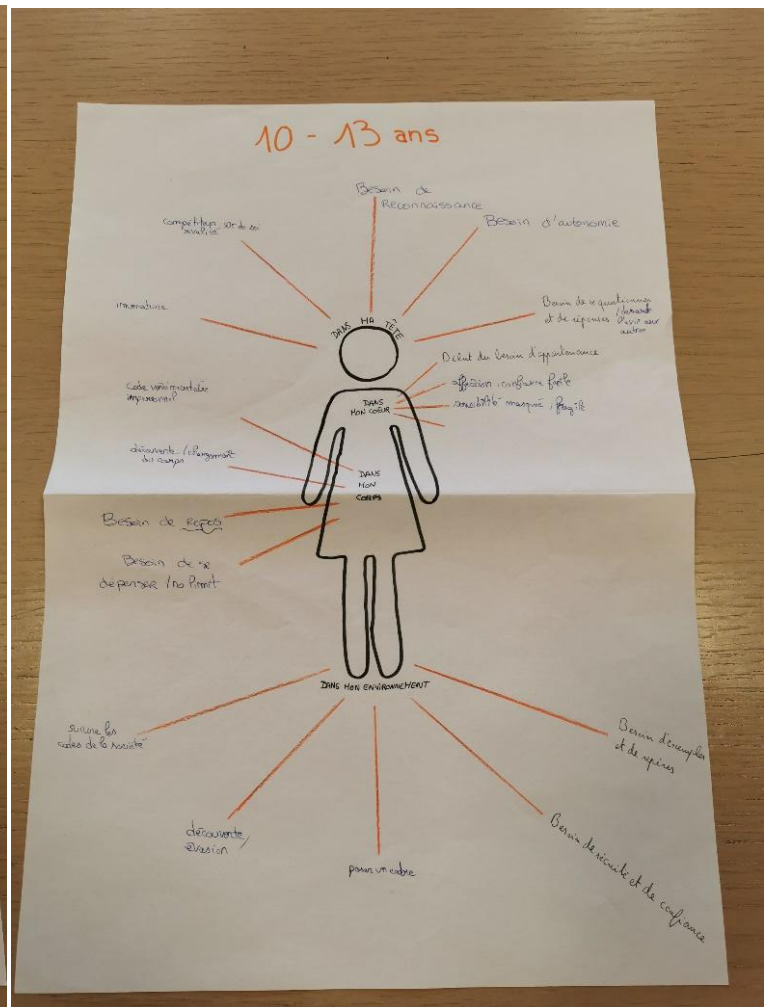 10 - 13 ans
Besoin de
Reconnaissance
compétition sûr de soi
rivalité
Besoin d'autonomie
immature
Besoin de se questionner
et de réponses / devant
autres
DANS MA TÊTE
Début du besoin d'appartenance
affection, confiance facile
sensibilité masquée, fragile
DANS
MON COEUR
Code vestimentaire
impersonnel
découverte / changement
du corps
DANS
MON
CORPS
Besoin de repos
Besoin de se
dépenser / no limit
DANS MON ENVIRONNEMENT
suivre les
codes de la société
découverte /
évasion
poser un cadre
Besoin d'exemples
et de repères
Besoin de sécurité et de confiance